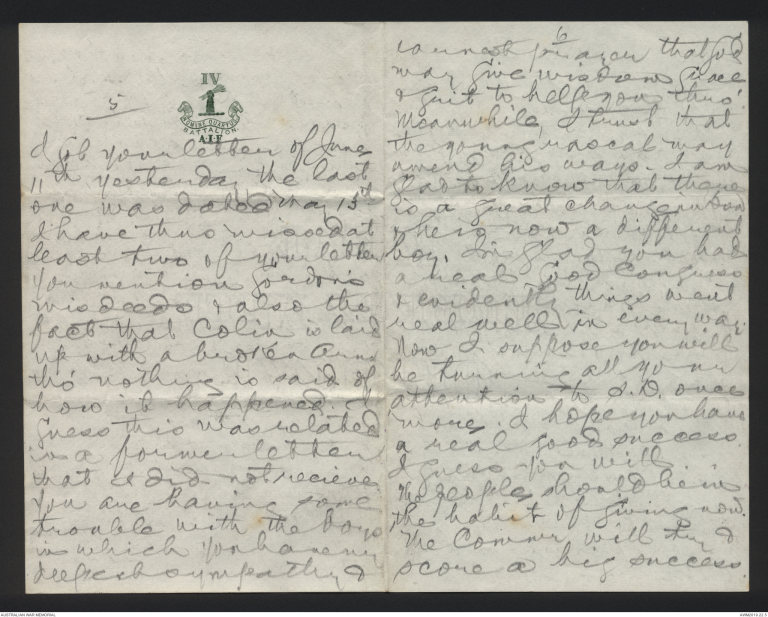 5
IV
1
NOMINE QUARTUS
BATTALION
A·I·F
I got your letter of June
11th yesterday the last
one was dated May 13th
I have thus missed at
least two of your letters
You mention Gordon's
misdeeds & also the
fact that Colin is laid
up with a broken arm
tho' nothing is said of
how it happened I
guess this was related
in a former letter
that I did not recieve
You are having some
trouble with the boys
in which you have my
deepest sympathy &
6
earnest prayer that God
may give wisdom grace
& grit to help you thro'
Meanwhile, I trust that
the young rascal may
amend his ways. I am
glad to know that there
is a great change in Don
& he is now a different
boy. I'm glad you had
a real good Congress
& evidently things went
real well in every way.
Now I suppose you will
be turning all your
attention to S.D. once
more. I hope you have
a real good success.
I guess you will
The people should be in
the habit of giving now.
The Commr will try &
score a big success
AUSTRALIAN WAR MEMORIAL
AWM2019.22.5